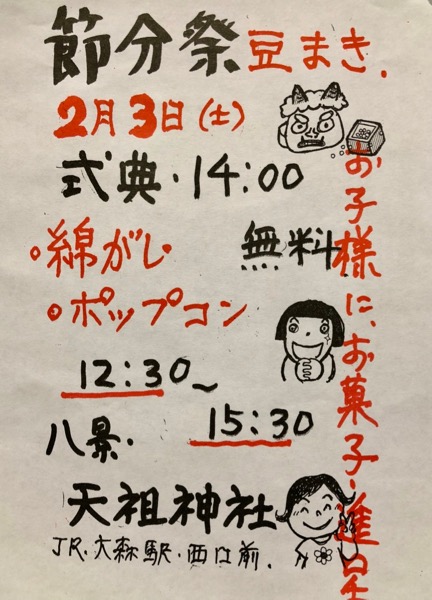 節分祭 豆まき.
2月3日(土)
式典・14:00
・綿がし 無料
・ポップコン
12:30~
15:30
八景・
天祖神社
JR.大森駅・西口前.
お子様に、お菓子・進呈